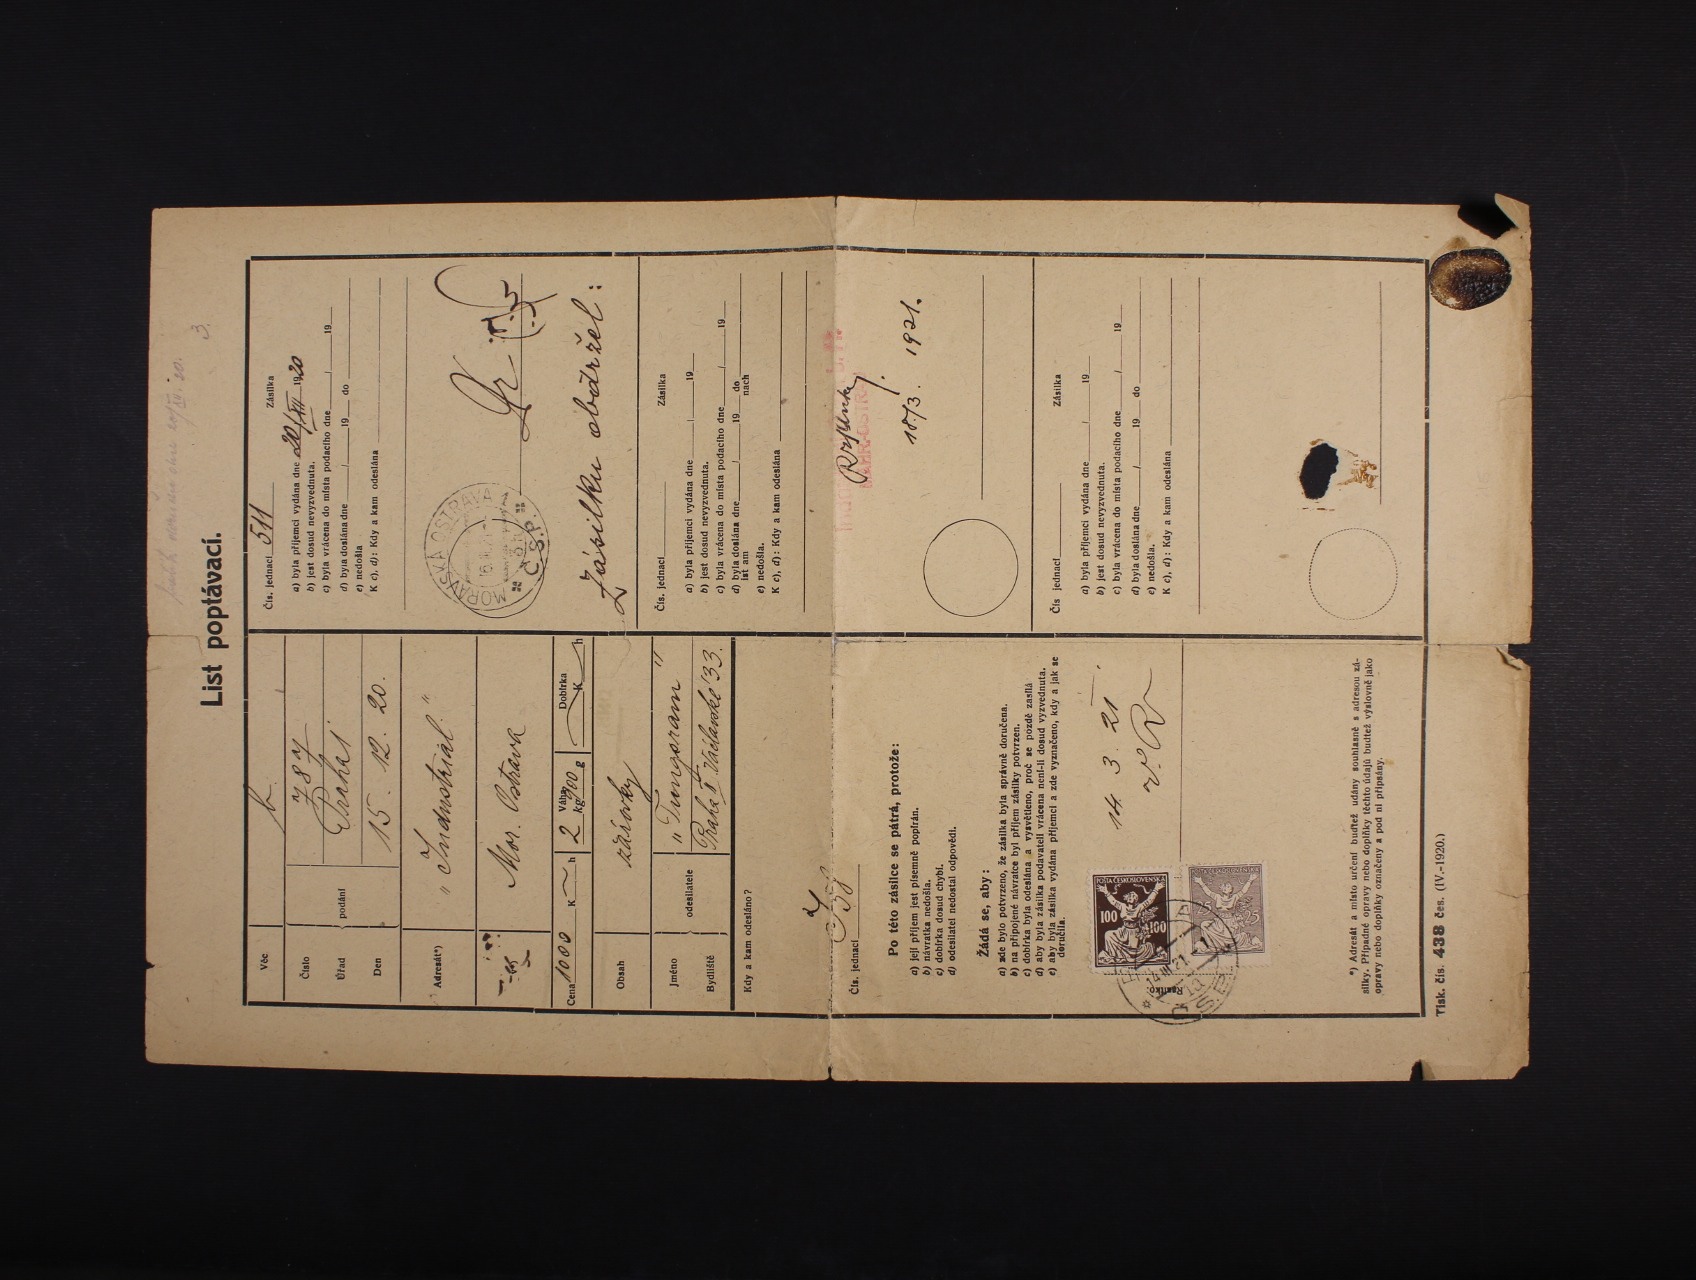 List poptávací.
Věc
Číslo
787
podání
Úřad
Praha 1
Den
15. 12. 20.
Adresát*)
„Industrial"
Mor. Ostrava
Cena 1000 K h
Váha 2 kg 900 g
Dobírka
K h
Obsah
žárovky
odesílatele
Jméno
„Tungsram"
Bydliště
Praha II Václavské 33.
Kdy a kam odesláno?
Čís. jednací
Po této zásilce se pátrá, protože:
a) její příjem jest písemně popírán.
b) návratka nedošla.
c) dobírka dosud chybí.
d) odesílatel nedostal odpovědi.
Žádá se, aby:
a) zde bylo potvrzeno, že zásilka byla správně doručena.
b) na připojené návratce byl příjem zásilky potvrzen.
c) dobírka byla odeslána a vysvětleno, proč se pozdě zasílá
d) aby byla zásilka podavateli vrácena není-li dosud vyzvednuta.
e) aby byla zásilka vydána příjemci a zde vyznačeno, kdy a jak se
doručila.
14. 3. 21
POŠTA ČESKOSLOVENSKÁ
100
100
POŠTA ČESKOSLOVENSKÁ
25
25
14.III.21
*) Adresát a místo určení buďtež udány souhlasně s adresou zá-
silky. Případné opravy nebo doplňky těchto údajů buďtež výslovně jako
opravy nebo doplňky označeny a pod ni připsány.
Tisk. čís. 438 čes. (IV.-1920.)
3.
Čís. jednací 511
Zásilka
a) byla příjemci vydána dne 20/XII 1920
b) jest dosud nevyzvednuta.
c) byla vrácena do místa podacího dne / 19
d) byla doslána dne / 19 do
e) nedošla
K c), d): Kdy a kam odeslána
MORAVSKÁ OSTRAVA 1
Č.S.P.
Zásilku obdržel:
Čís. jednací
Zásilka
a) byla příjemci vydána dne / 19
b) jest dosud nevyzvednuta.
c) byla vrácena do místa podacího dne / 19
d) byla doslána dne / 19 do
ist am nach
e) nedošla.
K c), d): Kdy a kam odeslána
MÄHR.-OSTRAU
18/3. 1921.
Čís jednací
Zásilka
a) byla příjemci vydána dne / 19
b) jest dosud nevyzvednuta.
c) byla vrácena do místa podacího dne / 19
d) byla doslána dne / 19 do
e) nedošla.
K c), d): Kdy a kam odeslána